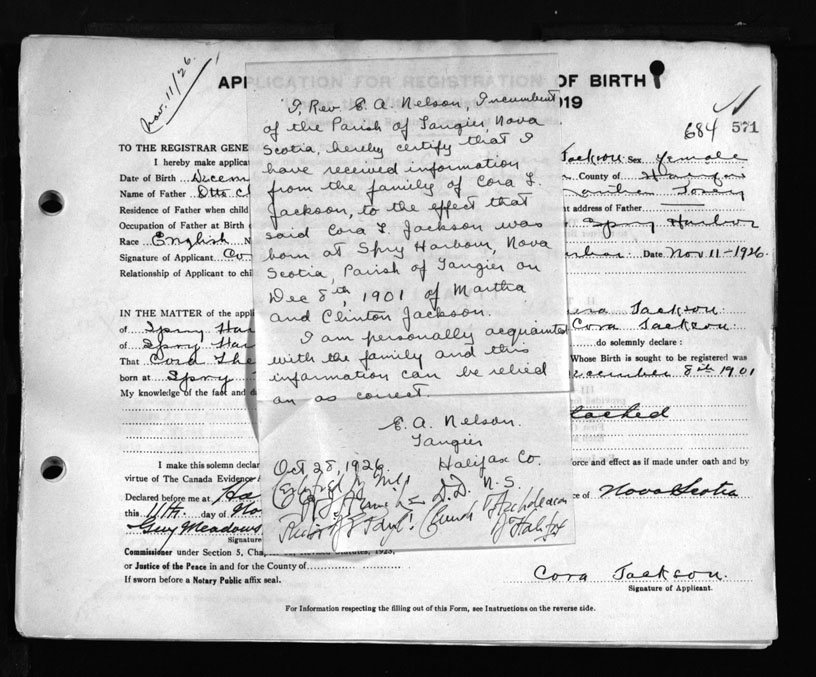 Nov. 11/26.
APPLICATION FOR REGISTRATION OF BIRTH
019
684 571
TO THE REGISTRAR GENE
I hereby make applicat Jackson Sex female
Date of Birth Decem County of
Name of Father Otto Cl
Residence of Father when child t address of Father
Occupation of Father at Birth Spry Harbor
Race English N
Signature of Applicant Co Date Nov 11-1926.
Relationship of Applicant to chi
I, Rev. E. A. Nelson, Incumbent
of the Parish of Tangier, Nova
Scotia, hereby certify that I
have received information
from the family of Cora L.
Jackson, to the effect that
said Cora L. Jackson was
born at Spry Harbour, Nova
Scotia, Parish of Tangier on
Dec 8th, 1901 of Martha
and Clinton Jackson.
I am personally acquainted
with the family and this
information can be relied
on as correct.
E. A. Nelson.
Tangier
Halifax Co.
N. S.
Oct 28, 1926.
D.D.
Rector of St Paul's Church & Archdeacon
of Halifax
IN THE MATTER of the appli Jackson
of Spry Har Cora Jackson
of Spry Har do solemnly declare :
That Cora Whose Birth is sought to be registered was
born at Spry December 8th 1901
My knowledge of the fact and d
I make this solemn declar orce and effect as if made under oath and by
virtue of The Canada Evidence
Declared before me at Ha ce of Nova Scotia
this 11th. day of No
Guy Meadows
Signature
Commissioner under Section 5, Cha Revised Statutes, 1923,
or Justice of the Peace in and for the County of
If sworn before a Notary Public affix seal.
Cora Jackson.
Signature of Applicant.
For Information respecting the filling out of this Form, see Instructions on the reverse side.